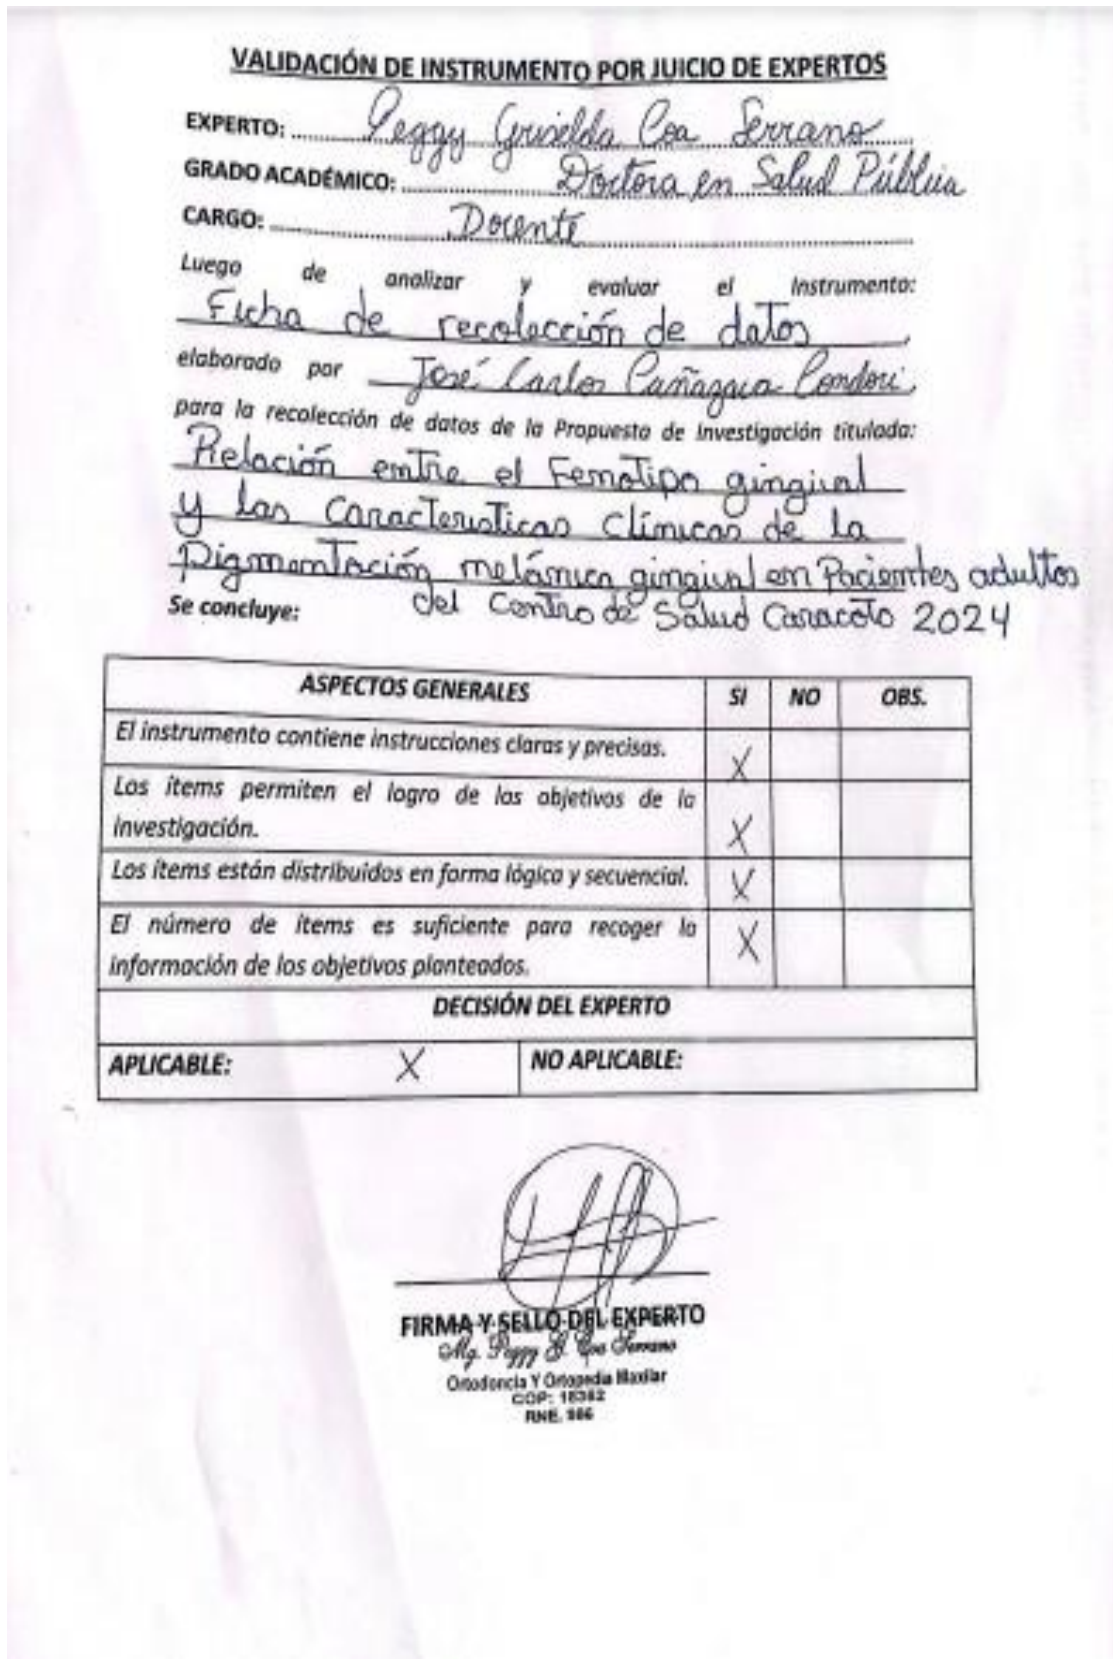 VALIDACIÓN DE INSTRUMENTO POR JUICIO DE EXPERTOS
EXPERTO: Peggy Griselda Coa Serrano
GRADO ACADÉMICO: Doctora en Salud Pública
CARGO: Docente
Luego de analizar y evaluar el Instrumento:
Ficha de recolección de datos
elaborado por José Carlos Cañazaca Condori
para la recolección de datos de la Propuesta de Investigación titulada:
Relación entre el Fenotipo gingival
y las Caracteristicas Clínicas de la
Pigmentación melánica gingival en Pacientes adultos
del Centro de Salud Caracoto 2024
Se concluye:
ASPECTOS GENERALES SI NO OBS.
El instrumento contiene instrucciones claras y precisas. X
Los ítems permiten el logro de los objetivos de la
investigación. X
Los ítems están distribuidos en forma lógica y secuencial. X
El número de ítems es suficiente para recoger la
información de los objetivos planteados. X
DECISIÓN DEL EXPERTO
APLICABLE: X NO APLICABLE:
FIRMA Y SELLO DEL EXPERTO
Mg. Peggy G. Coa Serrano
Ortodoncia Y Ortopedia Maxilar
COP: 18382
RNE. 986